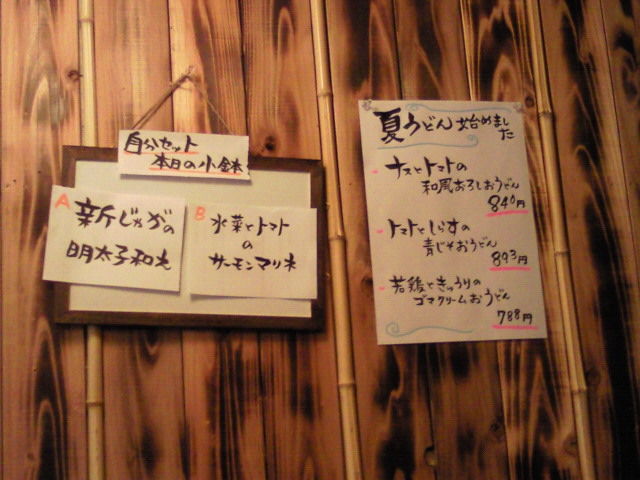 自分セット
本日の小鉢
A
新じゃがの
明太子和え
B
水菜とトマト
の
サーモンマリネ
夏うどん始めまし
た
ナスとトマトの
和風おろしおうどん
840円
トマトとしらすの
青じそおうどん
893円
若鶏ときゅうりの
ゴマクリームおうどん
788円